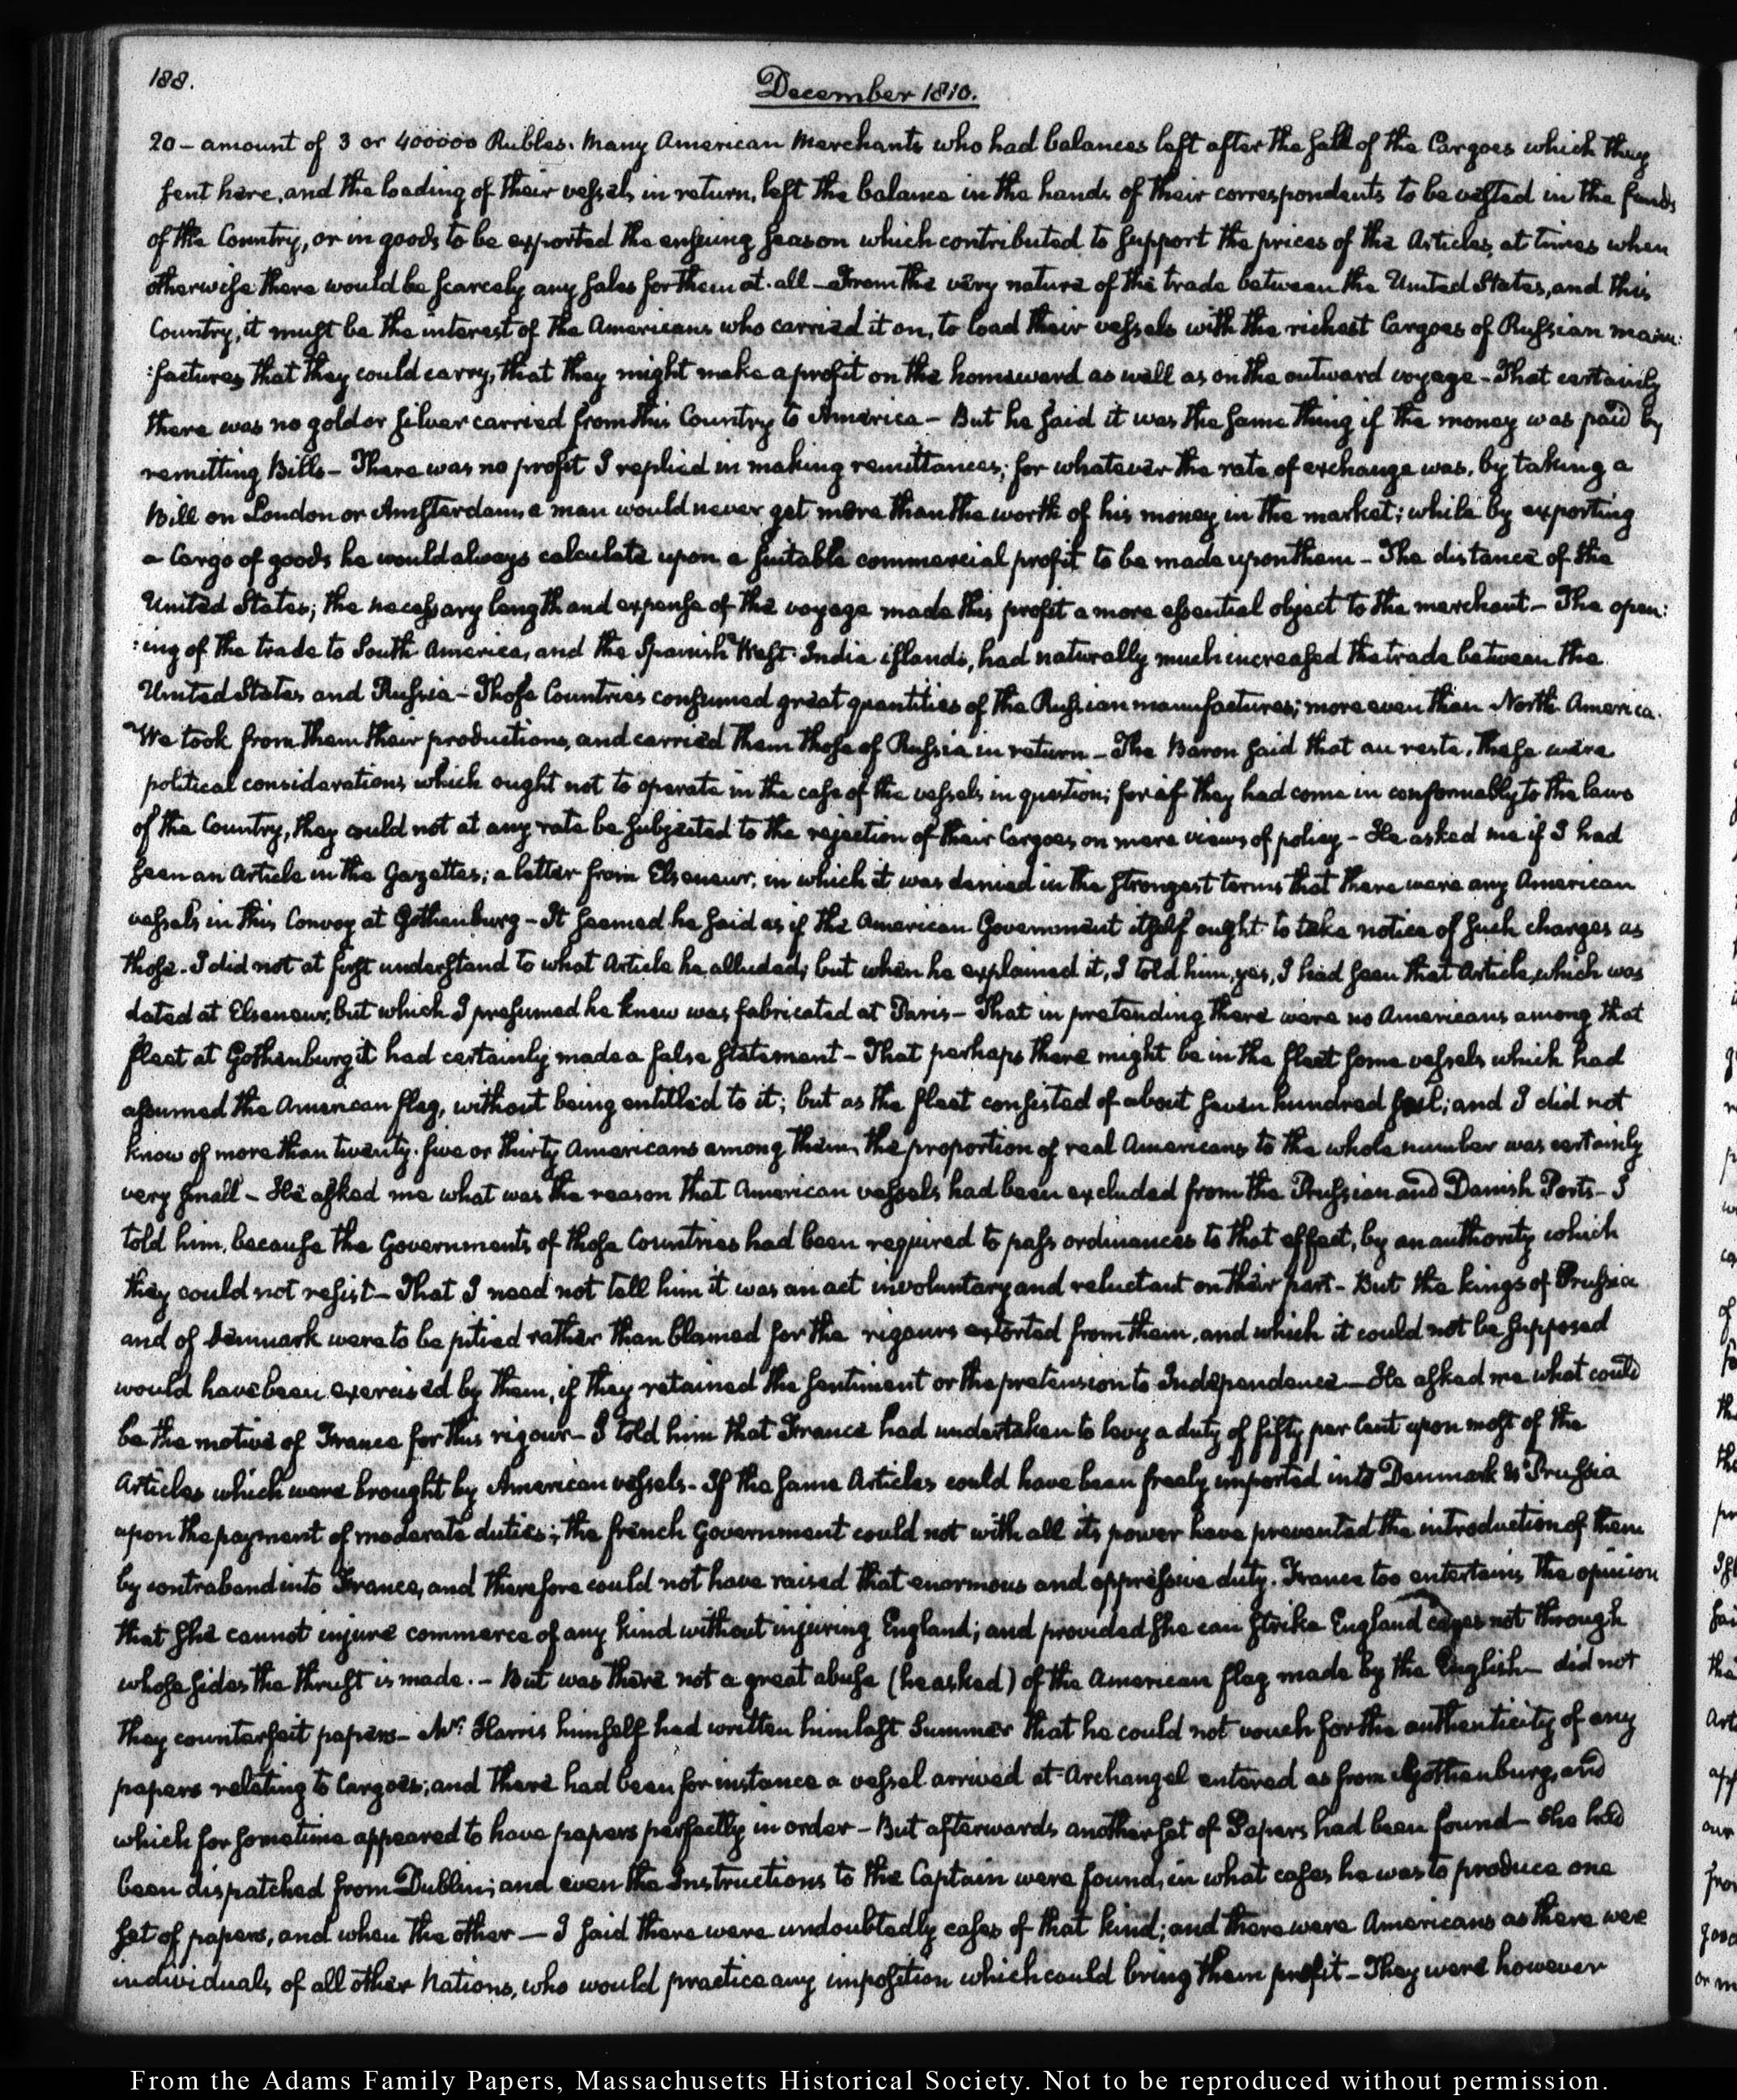 188.
December 1810.
20 – amount of 3 or 400000 Rubles. Many American Merchants who had balances left after the sale of the Cargoes which they
sent here, and the loading of their vessels in return, left the balance in the hands of their correspondents to be vested in the funds
of the Country, or in goods to be exported the ensuing season which contributed to support the prices of the Articles, at times when
otherwise there would be scarcely any sales for them at all – From the very nature of the trade between the United States, and this
Country, it must be the interest of the Americans who carried it on, to load their vessels with the richest Cargoes of Russian manu:
:factures that they could carry, that they might make a profit on the homeward as well as on the outward voyage – That certainly
there was no gold or silver carried from this Country to America – But he said it was the same thing if the money was paid by
remitting Bills – There was no profit I replied in making remittances; for whatever the rate of exchange was, by taking a
Bill on London or Amsterdam, a man would never get more than the worth of his money in the market; while by exporting
a Cargo of goods he would always calculate upon a suitable commercial profit to be made upon them – The distance of the
United States; the necessary length and expense of the voyage made this profit a more essential object to the merchant – The open:
:ing of the trade to South America, and the Spanish West-India islands, had naturally much increased the trade between the
United States and Russia – Those Countries consumed great quantities of the Russian manufactures; more even than North America.
We took from them their productions, and carried them those of Russia in return – The Baron said that au reste, these were
political considerations which ought not to operate in the case of the vessels in question; for if they had come in conformably to the laws
of the Country, they could not at any rate be subjected to the rejection of their Cargoes on mere views of policy – He asked me if I had
seen an Article in the Gazettes; a letter from Elseneur, in which it was denied in the strongest terms that there were any American
vessels in this Convoy at Gothenburg – It seemed he said as if the American Government itself ought to take notice of such charges as
those. I did not at first understand to what Article he alluded; but when he explained it, I told him, yes, I had seen that Article, which was
dated at Elseneur, but which I presumed he knew was fabricated at Paris – That in pretending there were no Americans among that
fleet at Gothenburg it had certainly made a false statement – That perhaps there might be in the fleet some vessels which had
assumed the American flag, without being entitled to it; but as the fleet consisted of about seven hundred sail; and I did not
know of more than twenty-five or thirty Americans among them, the proportion of real Americans to the whole number was certainly
very small – He asked me what was the reason that American vessels had been excluded from the Prussian and Danish Ports – I
told him, because the Governments of those Countries had been required to pass ordinances to that effect, by an authority which
they could not resist – That I need not tell him it was an act involuntary and reluctant on their part – But the kings of Prussia
and of Denmark were to be pitied rather than blamed for the rigours extorted from them, and which it could not be supposed
would have been exercised by them, if they retained the sentiment or the pretension to Independence – He asked me what could
be the motive of France for this rigour – I told him that France had undertaken to levy a duty of fifty per Cent upon most of the
Articles which were brought by American vessels – If the same Articles could have been freely imported into Denmark & Prussia
upon the payment of moderate duties; the french Government could not with all its power have prevented the introduction of them
by contraband into France, and therefore could not have raised that enormous and oppressive duty. France too entertains the opinion
that she cannot injure commerce of any kind without injuring England; and provided she can strike England cares not through
whose sides the thrust is made. – But was there not a great abuse (he asked) of the American flag made by the English – did not
they counterfeit papers – Mr. Harris himself had written him last Summer that he could not vouch for the authenticity of any
papers relating to Cargoes; and there had been for instance a vessel arrived at Archangel entered as from Gothenburg, and
which for sometime appeared to have papers perfectly in order – But afterwards another set of Papers had been found – She had
been dispatched from Dublin; and even the Instructions to the Captain were found, in what cases he was to produce one
set of papers, and when the other – I said there were undoubtedly cases of that kind; and there were Americans as there were
individuals of all other Nations, who would practice any imposition which could bring them profit – They were however
From the Adams Family Papers, Massachusetts Historical Society. Not to be reproduced without permission.